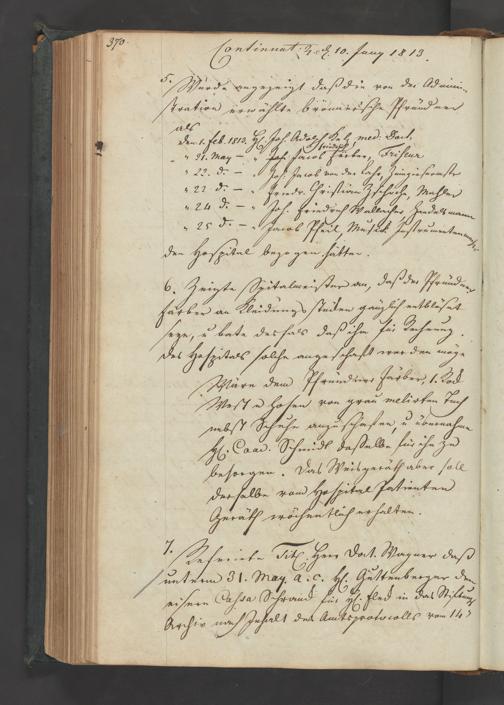 370.
Continuat. d. 10. Juny 1813.
5. Wurde angezeigt daß die von der Admini-
stration erwählte brönnerische Pfründner
als
den 1. Feb. 1813. H. Joh. Adolph Kelz, med. Doct.
" 21. May — " Jacob Färber, Friseur
" 22. d° — " Joh. Jacob von der Lahr, Zinngießermstr
" 22 d° — " Friedr. Christian Zschoche, Mahler
" 24 d° — " Joh. Friedrich Wallacher, Handelsmann
" 25 d° — " Jacob Pfeil, Musick Instrumentenmacher
den Hospital bezogen hätten.
6. Zeigte Spitalmeister an, daß der Pfründner
Färber an Kleidungsstücken gänzlich entblößet
seye, u bate deshalb daß ihm für Rechnung
des Hospitals solche angeschaft werden möge
Wären dem Pfründner Färber, 1. Rock
West u Hosen von grau melirten Tuch
nebst Schuhe anzuschaffen, u übernahm
H. Cand. Schmidt dasselbe für ihn zu
besorgen. Das Weisgeräth aber soll
derselbe vom Hospital Patienten
Geräth wöchentlich erhalten.
7. Referirte Tit. Herr Doct. Wagner daß
unterm 31. May a. c. H. Guttenberger den
eisern Cassa Schrank für H. Fleck in das Stiftungs
Archiv nach Inhalt des Amtsprotocolls von 14